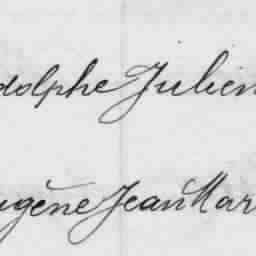 dolphe Julien
ugène Jean Mar